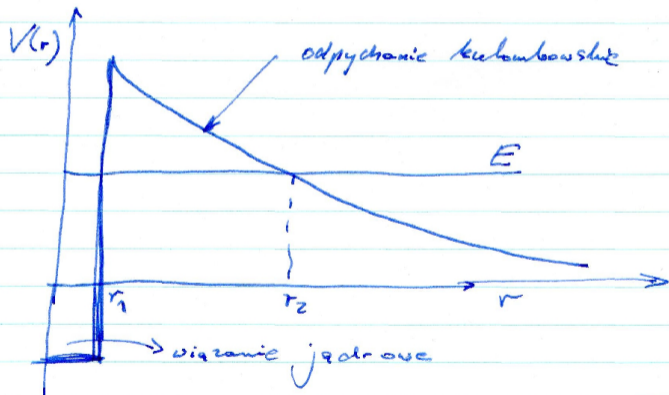 V(r)
odpychanie kulombowskie
E
r₁
r₂
r
wiązanie jądrowe